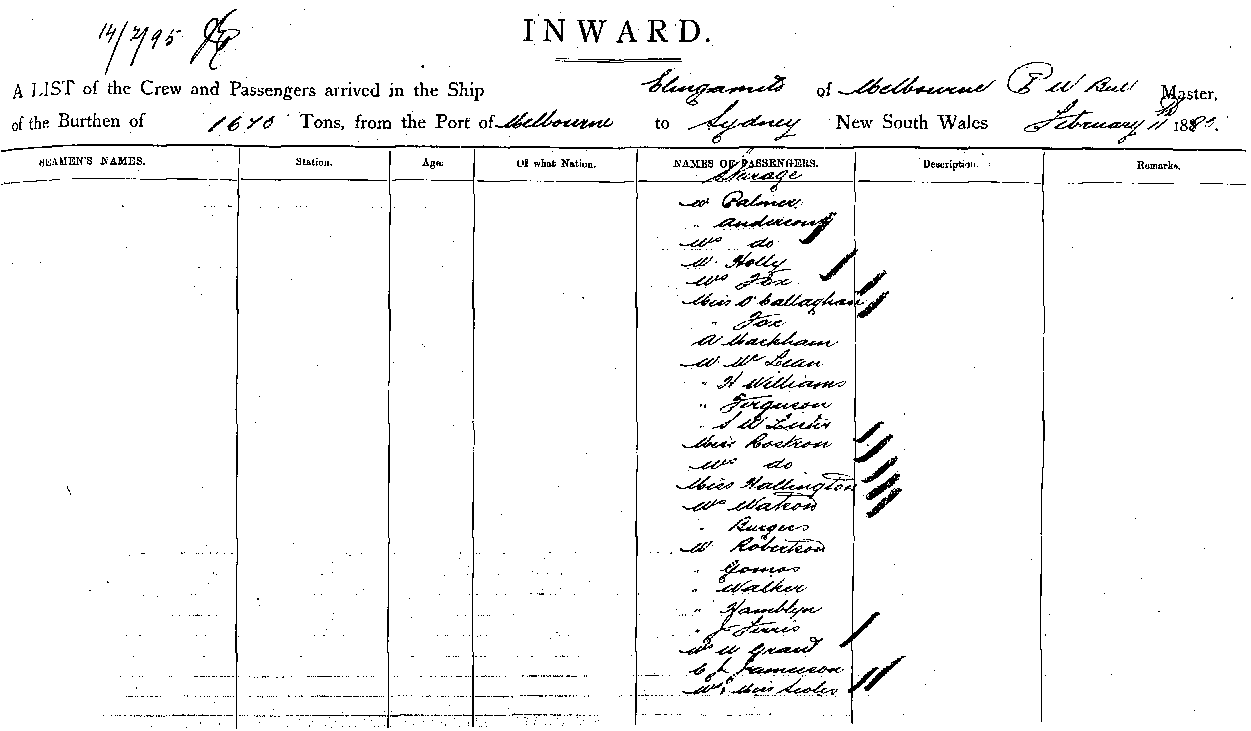 14/2/95
INWARD.
A LIST of the Crew and Passengers arrived in the Ship Elingamite of Melbourne P W Bull Master,
of the Burthen of 1670 Tons, from the Port of Melbourne to Sydney New South Wales February 11th 188
SEAMEN'S NAMES. Station. Age. Of what Nation. NAMES OF PASSENGERS. Description. Remarks.
Steerage
Mr Palmer
" Anderson
Mrs do
Mr Holly
Mrs Fox
Miss O'Callaghan
" Fox
A Markham
Mr McLean
" H Williams
" Ferguson
" S W
Miss Roskron
Mrs do
Miss Hallington
Mrs Watson
" Burgess
Mr Robertson
" Gomos
" Walker
" Hamblyn
" J Ferris
Mrs W Grant
C L Jamieson
Mrs & Miss